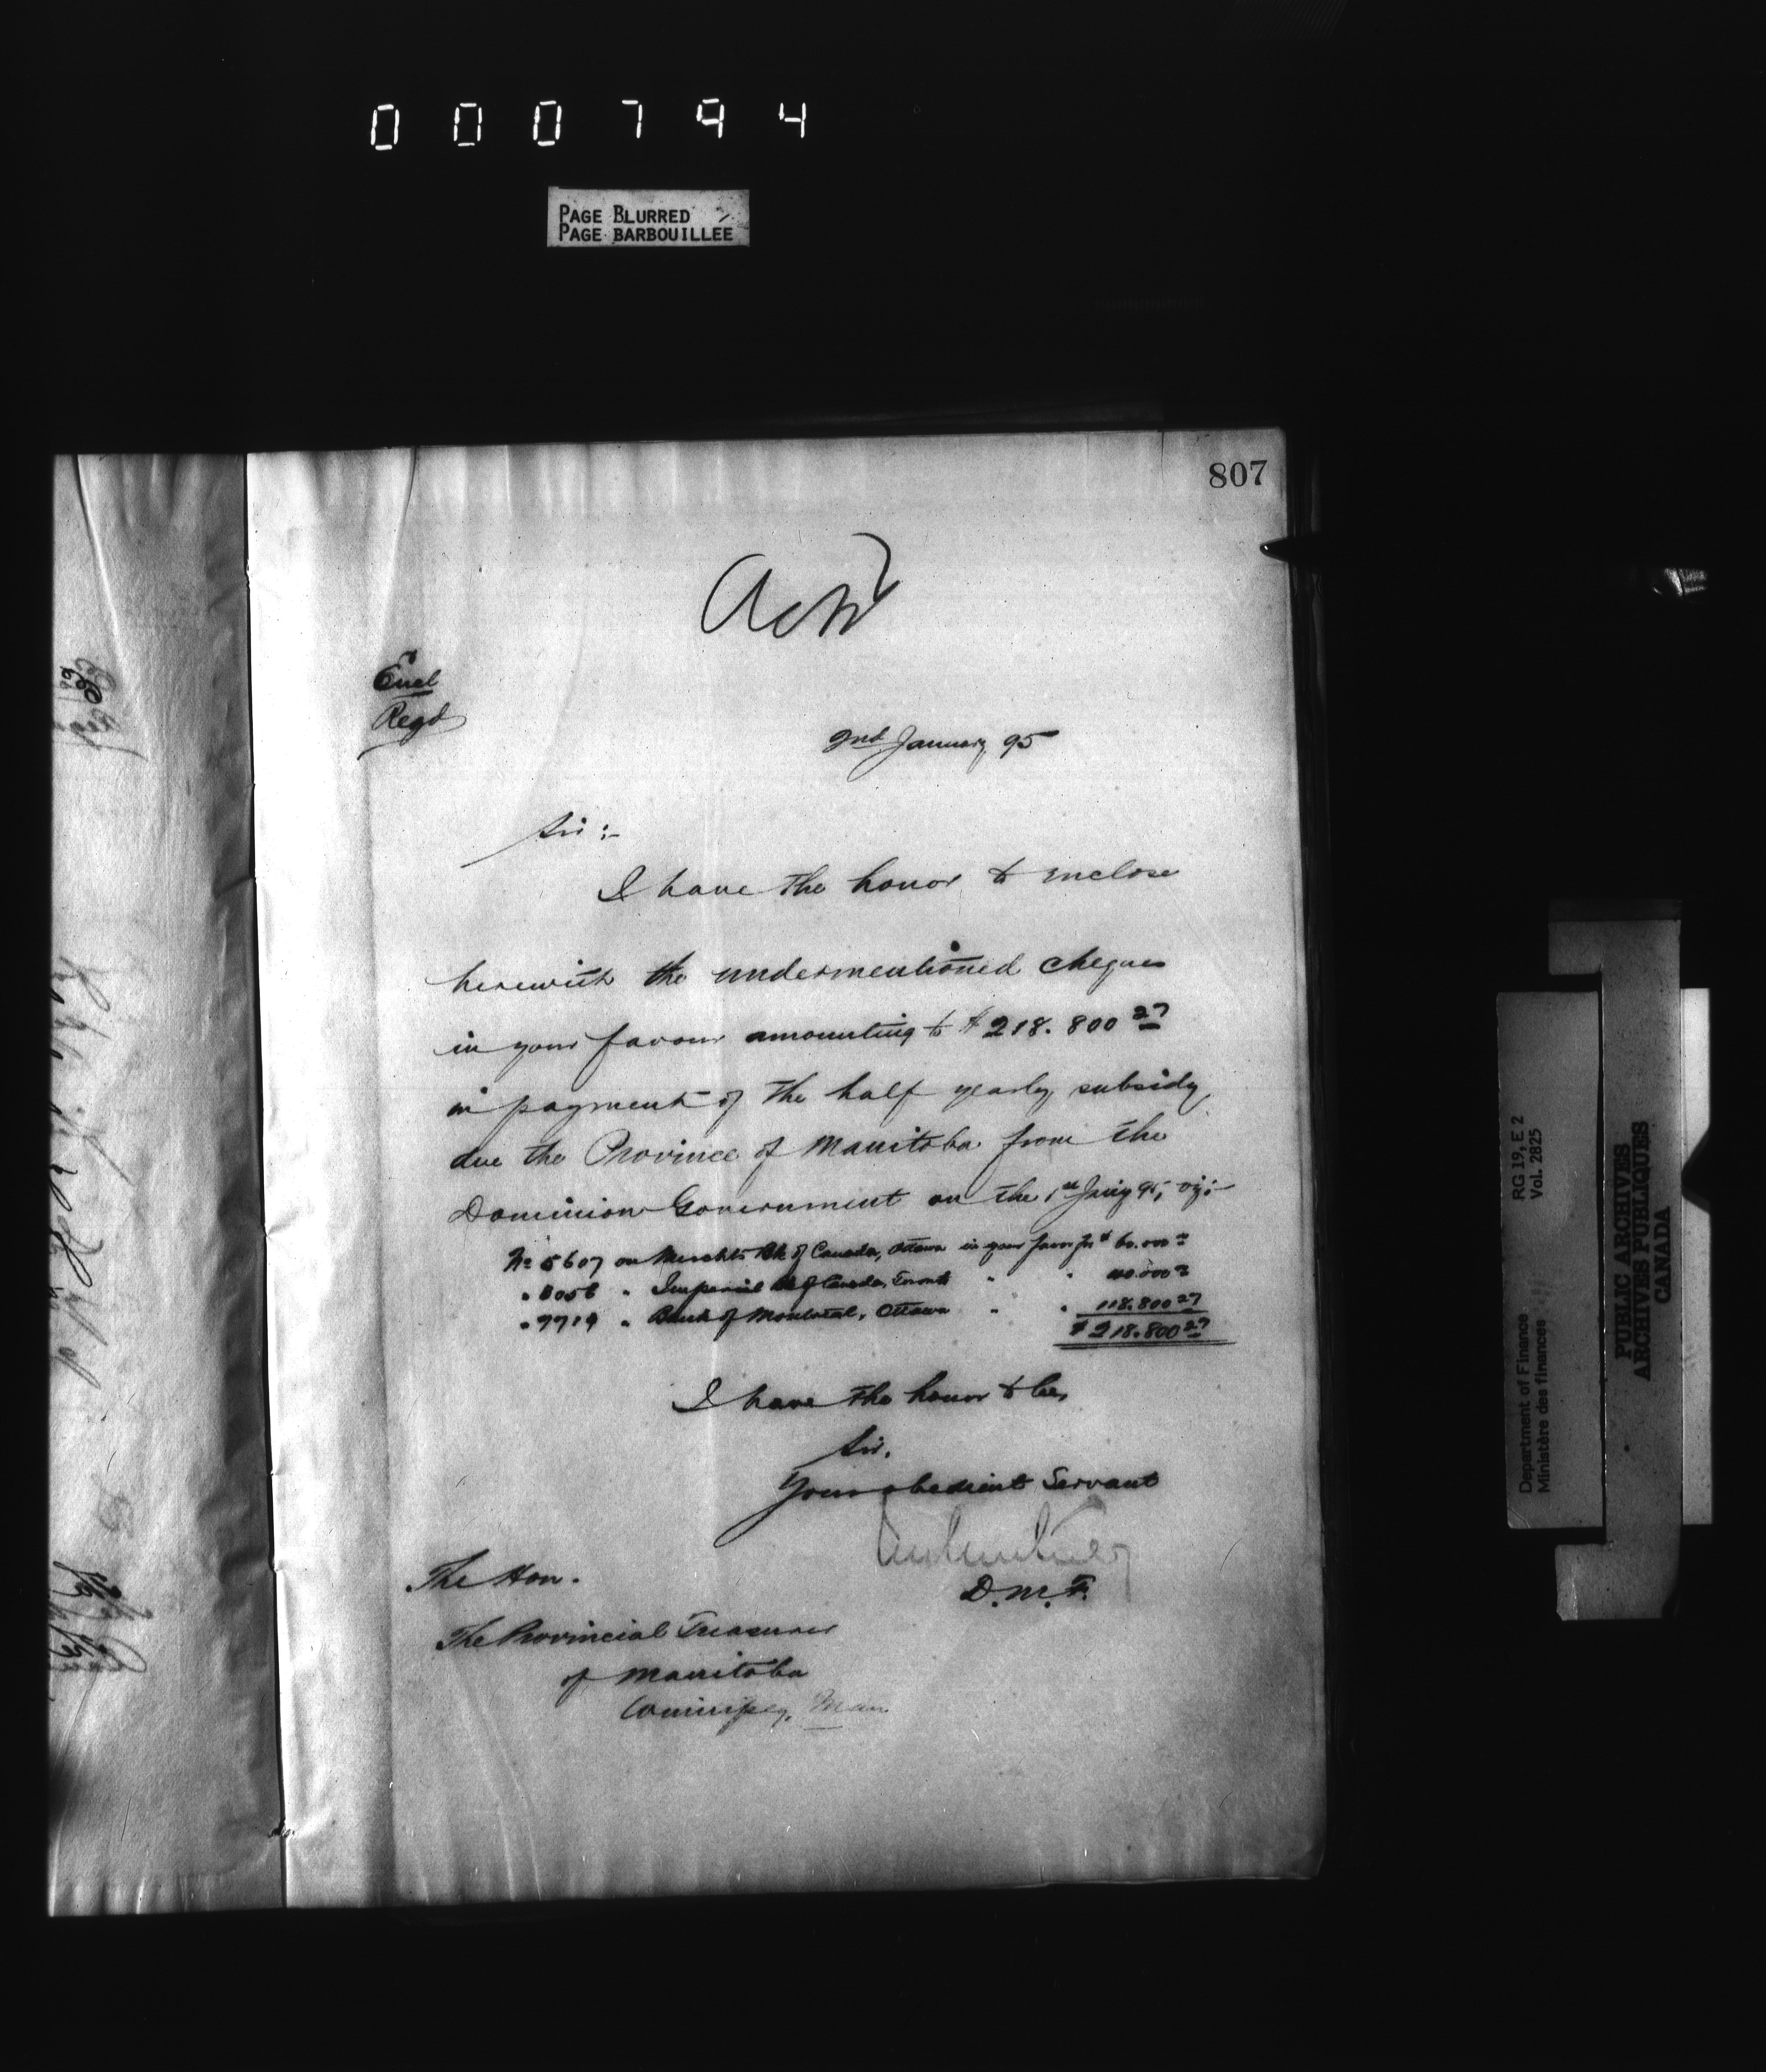 000794
PAGE BLURRED
PAGE BARBOUILLÉE
807
Encl
Regd
2nd January 95
Sir :-
I have the honor to enclose
herewith the undermentioned cheques
in your favour amounting to $218.800 27
in payment of the half yearly subsidy
due the Province of Manitoba from the
Dominion Government on the 1st Jany 95, viz:-
No 5607 on Merchts Bk of Canada, Ottawa in your favor for $ 60.000 00
" " Imperial Bk of Canada, Toronto " " 40.000 00
" 7719 " Bank of Montreal, Ottawa " " 118.800 27
$ 218.800 27
I have the honor to be,
Sir,
Your obedient Servant
D.M.F.
The Hon.
The Provincial Treasurer
of Manitoba
Winnipeg, Man
RG 19, E 2
Vol. 2825
Department of Finance
Ministère des finances
PUBLIC ARCHIVES
ARCHIVES PUBLIQUES
CANADA